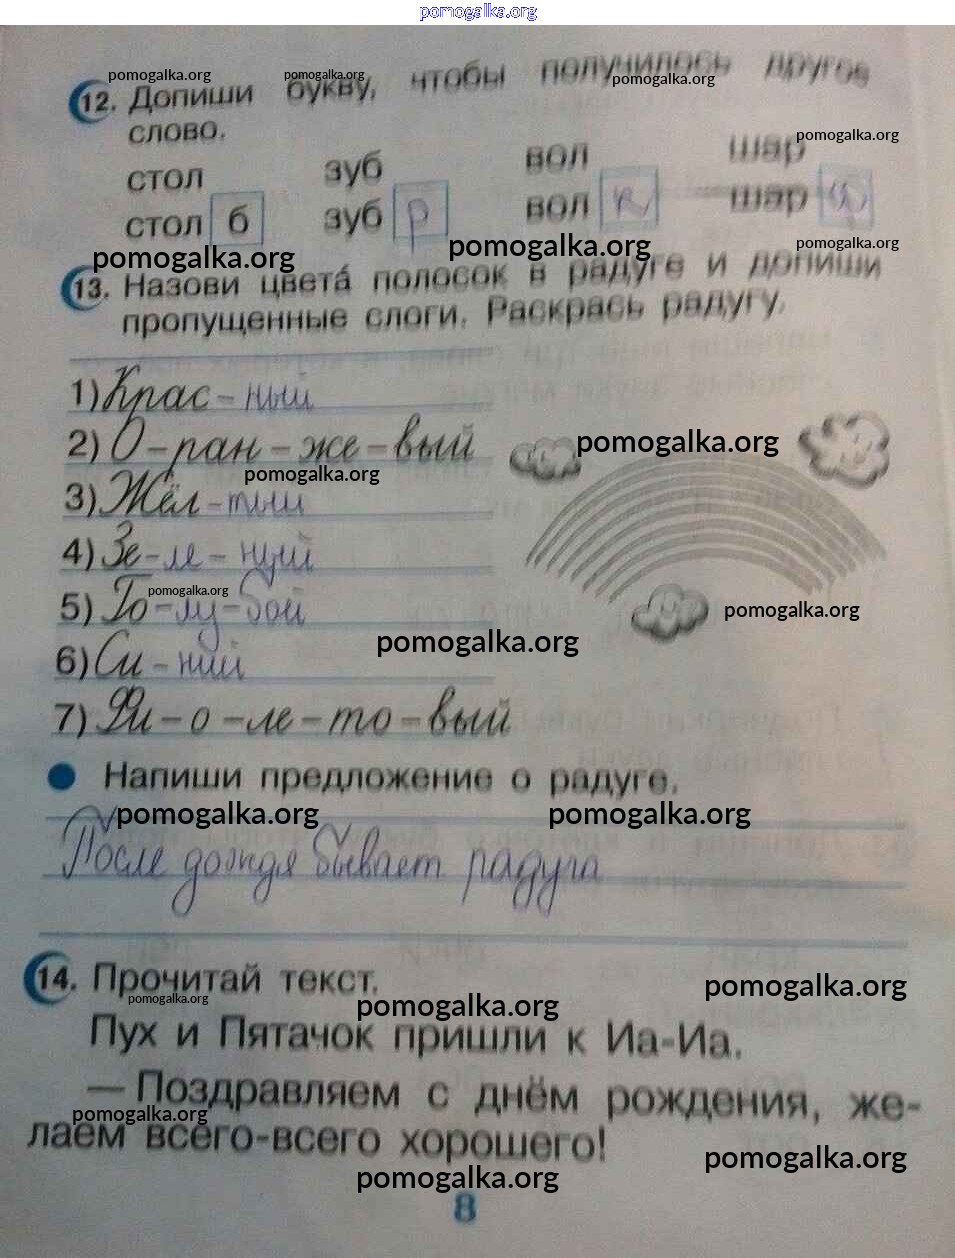 pomogalka.org
pomogalka.org pomogalka.org pomogalka.org
12. Допиши букву, чтобы получилось другое
слово.
pomogalka.org
стол зуб вол шар
стол б зуб р вол к шар ф
pomogalka.org pomogalka.org pomogalka.org
13. Назови цвета́ полосок в радуге и допиши
пропущенные слоги. Раскрась радугу.
1) Крас - ный
2) О - ран - же - вый
pomogalka.org
pomogalka.org
3) Жёл - тый
4) Зе - ле - ный
pomogalka.org
5) Го - лу - бой
pomogalka.org
pomogalka.org
6) Си - ний
7) Фи - о - ле - то - вый
Напиши предложение о радуге.
pomogalka.org pomogalka.org
После дождя бывает радуга
14. Прочитай текст.
pomogalka.org pomogalka.org pomogalka.org
Пух и Пятачок пришли к Иа-Иа.
— Поздравляем с днём рождения, же-
pomogalka.org
лаем всего-всего хорошего!
pomogalka.org pomogalka.org
8